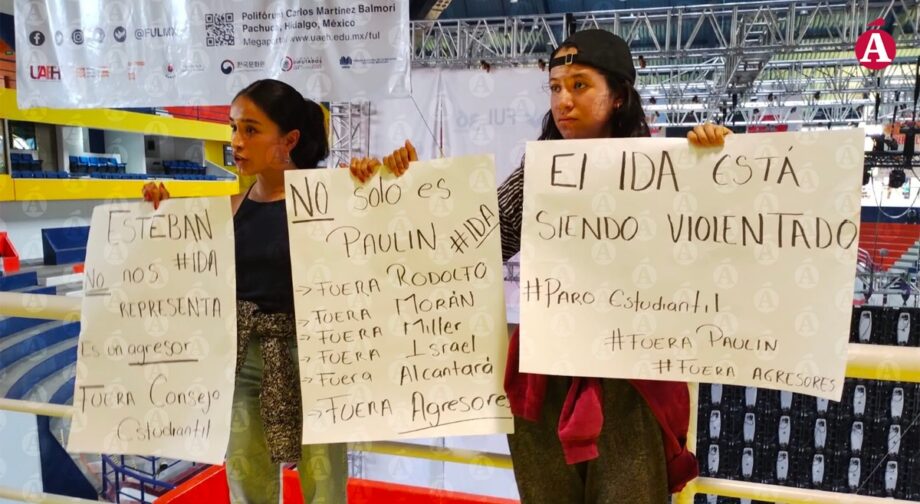 Polifórum Carlos Martínez Balmori
Pachuca, Hidalgo, México
Megapatio www.uaeh.edu.mx/ful
@FULMX
UAEH
ESTEBAN
NO NOS #IDA
REPRESENTA
Es un agresor
FUERA Consejo
Estudiantil
NO solo es
PAULIN #IDA
→FUERA RODOLFO
→FUERA MORÁN
→FUERA Miller
→FUERA Israel
→Fuera Alcantará
→FUERA Agresores
El IDA ESTÁ
SIENDO VIOLENTADO
#Paro Estudiantil
#FUERA PAULIN
#FUERA AGRESORES
Á